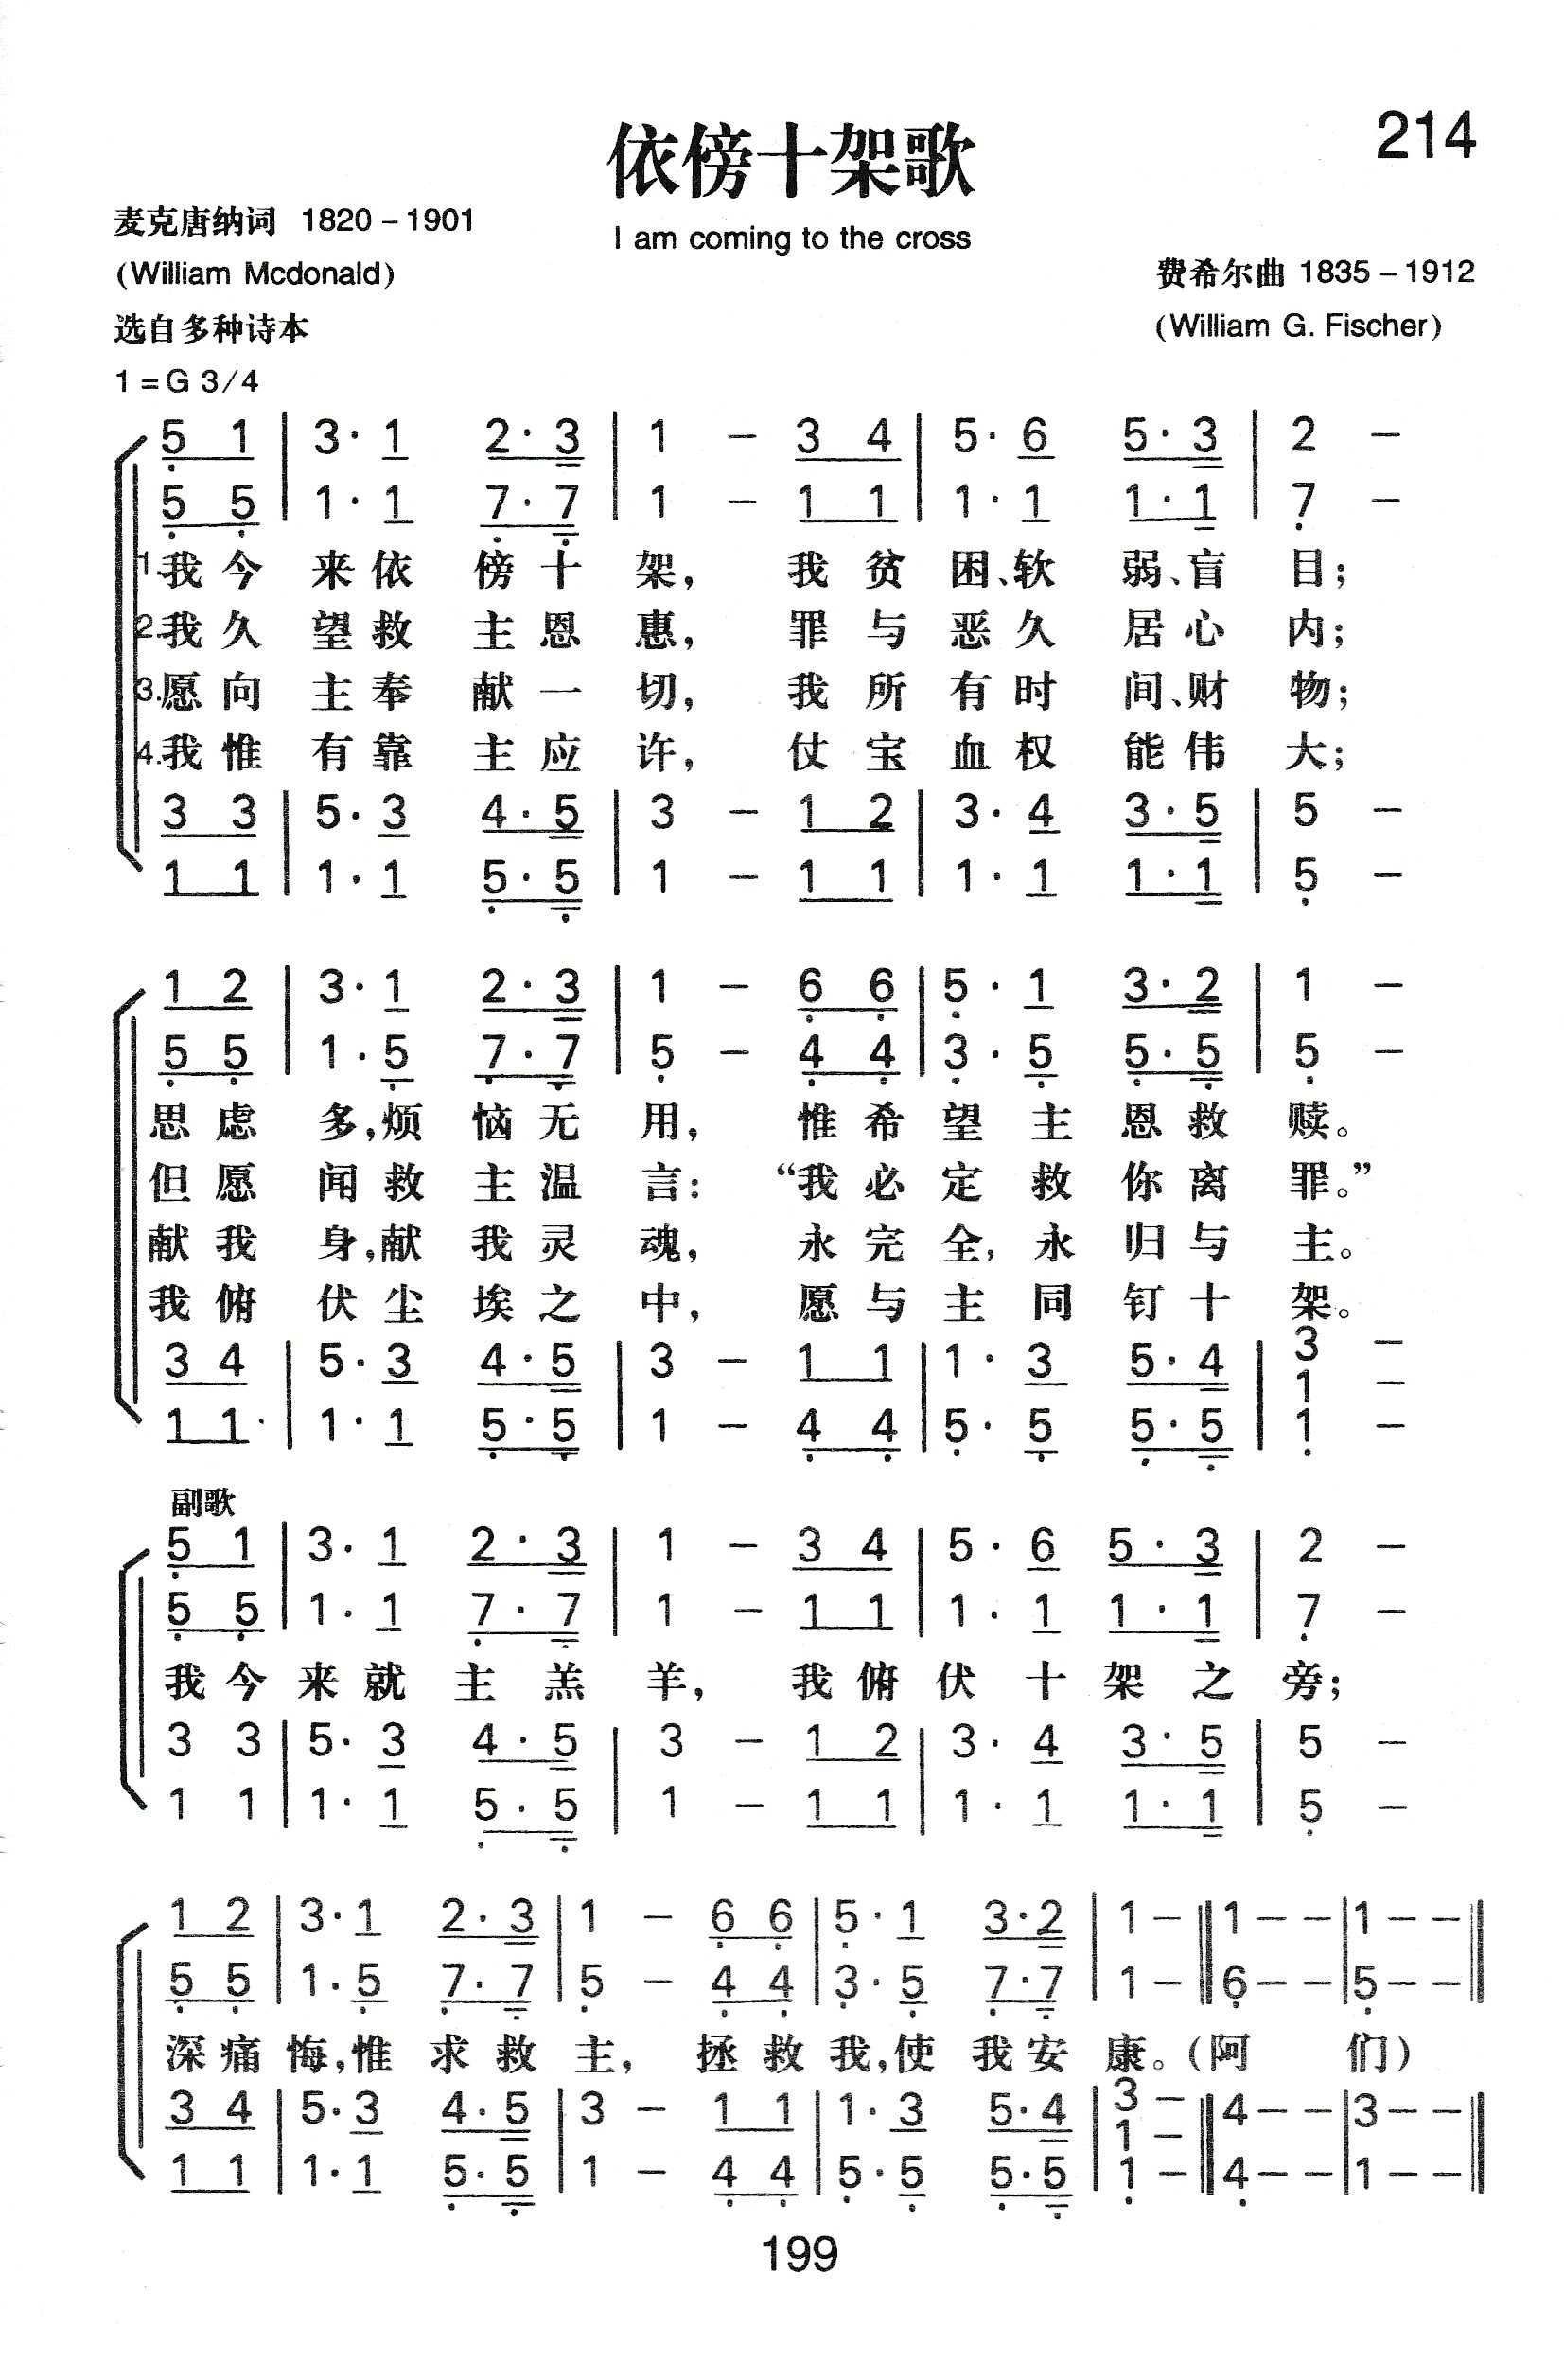 214
依傍十架歌
I am coming to the cross
麦克唐纳词 1820－1901
(William Mcdonald)
选自多种诗本
费希尔曲 1835－1912
(William G. Fischer)
1＝G 3/4
5 1 | 3· 1 2·3 | 1 － 3 4 | 5·6 5·3 | 2 －
5 5 | 1· 1 7·7 | 1 － 1 1 | 1·1 1·1 | 7 －
1.我今 来依 傍十 架， 我贫 困、软 弱、盲 目；
2.我久 望救 主恩 惠， 罪与 恶久 居心 内；
3.愿向 主奉 献一 切， 我所 有时 间、财 物；
4.我惟 有靠 主应 许， 仗宝 血权 能伟 大；
3 3 | 5· 3 4·5 | 3 － 1 2 | 3·4 3·5 | 5 －
1 1 | 1· 1 5·5 | 1 － 1 1 | 1·1 1·1 | 5 －
1 2 | 3·1 2·3 | 1 － 6 6 | 5·1 3·2 | 1 －
5 5 | 1·5 7·7 | 5 － 4 4 | 3·5 5·5 | 5 －
思虑 多，烦 恼无 用， 惟希 望主 恩救 赎。
但愿 闻救 主温 言： “我必 定救 你离 罪。”
献我 身，献 我灵 魂， 永完 全，永 归与 主。
我俯 伏尘 埃之 中， 愿与 主同 钉十 架。
3 4 | 5·3 4·5 | 3 － 1 1 | 1·3 5·4 | 3 －
1 －
1 1 | 1·1 5·5 | 1 － 4 4 | 5·5 5·5 | 1 －
副歌
5 1 | 3·1 2·3 | 1 － 3 4 | 5·6 5·3 | 2 －
5 5 | 1·1 7·7 | 1 － 1 1 | 1·1 1·1 | 7 －
我今 来就 主羔 羊， 我俯 伏十 架之 旁；
3 3 | 5·3 4·5 | 3 － 1 2 | 3·4 3·5 | 5 －
1 1 | 1·1 5·5 | 1 － 1 1 | 1·1 1·1 | 5 －
1 2 | 3·1 2·3 | 1 － 6 6 | 5·1 3·2 | 1 － ‖ 1 － － | 1 － － ‖
5 5 | 1·5 7·7 | 5 － 4 4 | 3·5 7·7 | 1 － ‖ 6 － － | 5 － － ‖
深痛 悔，惟 求救 主， 拯救 我，使 我安 康。（阿 们）
3 4 | 5·3 4·5 | 3 － 1 1 | 1·3 5·4 | 3 － ‖ 4 － － | 3 － － ‖
1 －
1 1 | 1·1 5·5 | 1 － 4 4 | 5·5 5·5 | 1 － ‖ 4 － － | 1 － － ‖
199